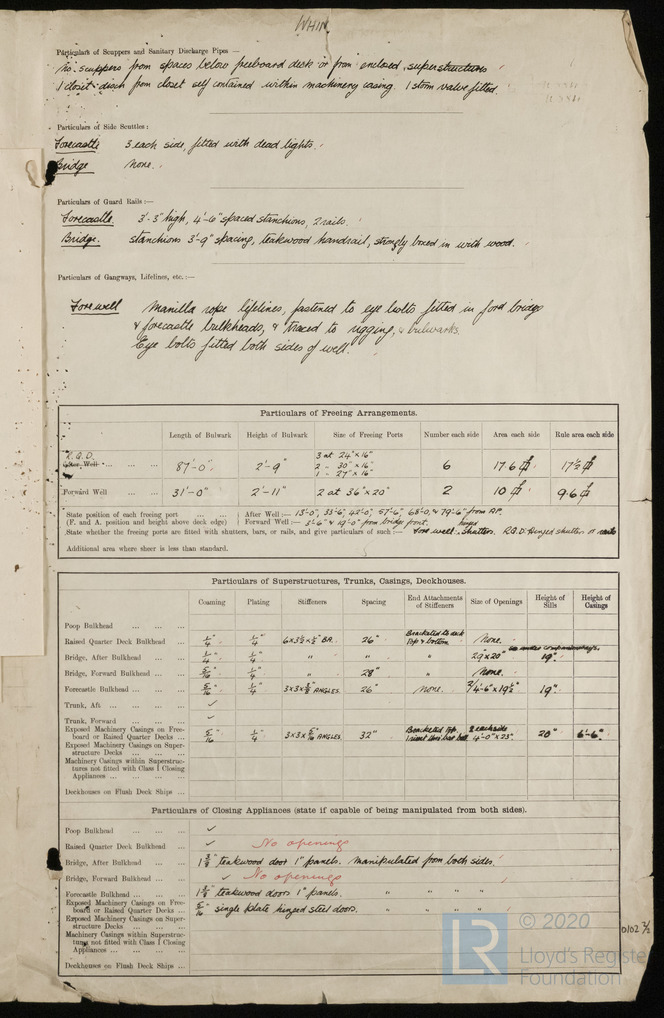 WHIN.
Particulars of Scuppers and Sanitary Discharge Pipes —
No scuppers from spaces below freeboard deck or from enclosed superstructures
1 closet disch from closet self contained within machinery casing. 1 storm valve fitted.
Particulars of Side Scuttles:
Forecastle 3 each side, fitted with dead lights.
Bridge None.
Particulars of Guard Rails:—
Forecastle. 3'-3" high, 4'-6" spaced stanchions, 2 rails.
Bridge. Stanchions 3'-9" spacing, teakwood handrail, strongly boxed in with wood.
Particulars of Gangways, Lifelines, etc.:—
Fore well Manilla rope lifelines, fastened to eye bolts fitted in ford bridge
& forecastle bulkheads, & traced to rigging, & bulwarks.
Eye bolts fitted both sides of well.
Particulars of Freeing Arrangements.
Length of Bulwark Height of Bulwark Size of Freeing Ports Number each side Area each side Rule area each side
R.Q.D. After Well ... ... ... 87'-0" 2'-9" 3 at 24"×16" 2 - 30"×16" 1 - 27"×16" 6 17.6 17½
Forward Well ... ... ... 31'-0" 2'-11" 2 at 36"×20" 2 10 9.6
State position of each freeing port ... ... After Well:— 13'-0", 33'-6", 42'-0", 57'-6", 68'-0, & 79'-6" from A.P.
(F. and A. position and height above deck edge) Forward Well:— 3'-6" & 19'-0" from bridge front.
State whether the freeing ports are fitted with shutters, bars, or rails, and give particulars of such:— Fore well: hinged shutters. R.Q.D. Hinged shutters
Additional area where sheer is less than standard.
Particulars of Superstructures, Trunks, Casings, Deckhouses.
Coaming Plating Stiffeners Spacing End Attachments of Stiffeners Size of Openings Height of Sills Height of Casings
Poop Bulkhead ... ... ...
Raised Quarter Deck Bulkhead ... ¼" ¼" 6×3½×½" BA. 26" Bracketed to deck top & bottom None.
Bridge, After Bulkhead ... ... ¼" ¼" " " " 29"×20" 19"
Bridge, Forward Bulkhead ... ... 5/16" ¼" " 28" " None.
Forecastle Bulkhead ... ... ... 5/16" ¼" 3×3×⅜" ANGLES. 26" None. 2/4'-6"×19½" 19"
Trunk, Aft ... ... ... ✓
Trunk, Forward ... ... ... ✓
Exposed Machinery Casings on Freeboard or Raised Quarter Decks ... 5/16" ¼" 3×3×5/16 ANGLES. 32" 2 each side 4'-0"×23" 20" 6'-6"
Exposed Machinery Casings on Superstructure Decks ... ... ...
Machinery Casings within Superstructures not fitted with Class I Closing Appliances ... ... ...
Deckhouses on Flush Deck Ships ...
Particulars of Closing Appliances (state if capable of being manipulated from both sides).
Poop Bulkhead ... ... ... ✓
Raised Quarter Deck Bulkhead ... ✓ No openings
Bridge, After Bulkhead ... ... 1¾" teakwood door 1" panels. Manipulated from both sides.
Bridge, Forward Bulkhead ... ... ✓ No openings
Forecastle Bulkhead ... ... ... 1¾" teakwood doors 1" panels. " " "
Exposed Machinery Casings on Freeboard or Raised Quarter Decks ... 5/16" single plate hinged steel doors. " " "
Exposed Machinery Casings on Superstructure Decks ... ... ...
Machinery Casings within Superstructures not fitted with Class I Closing Appliances ... ... ...
Deckhouses on Flush Deck Ships ...
LR © 2020
Lloyd's Register
Foundation
0102 ½